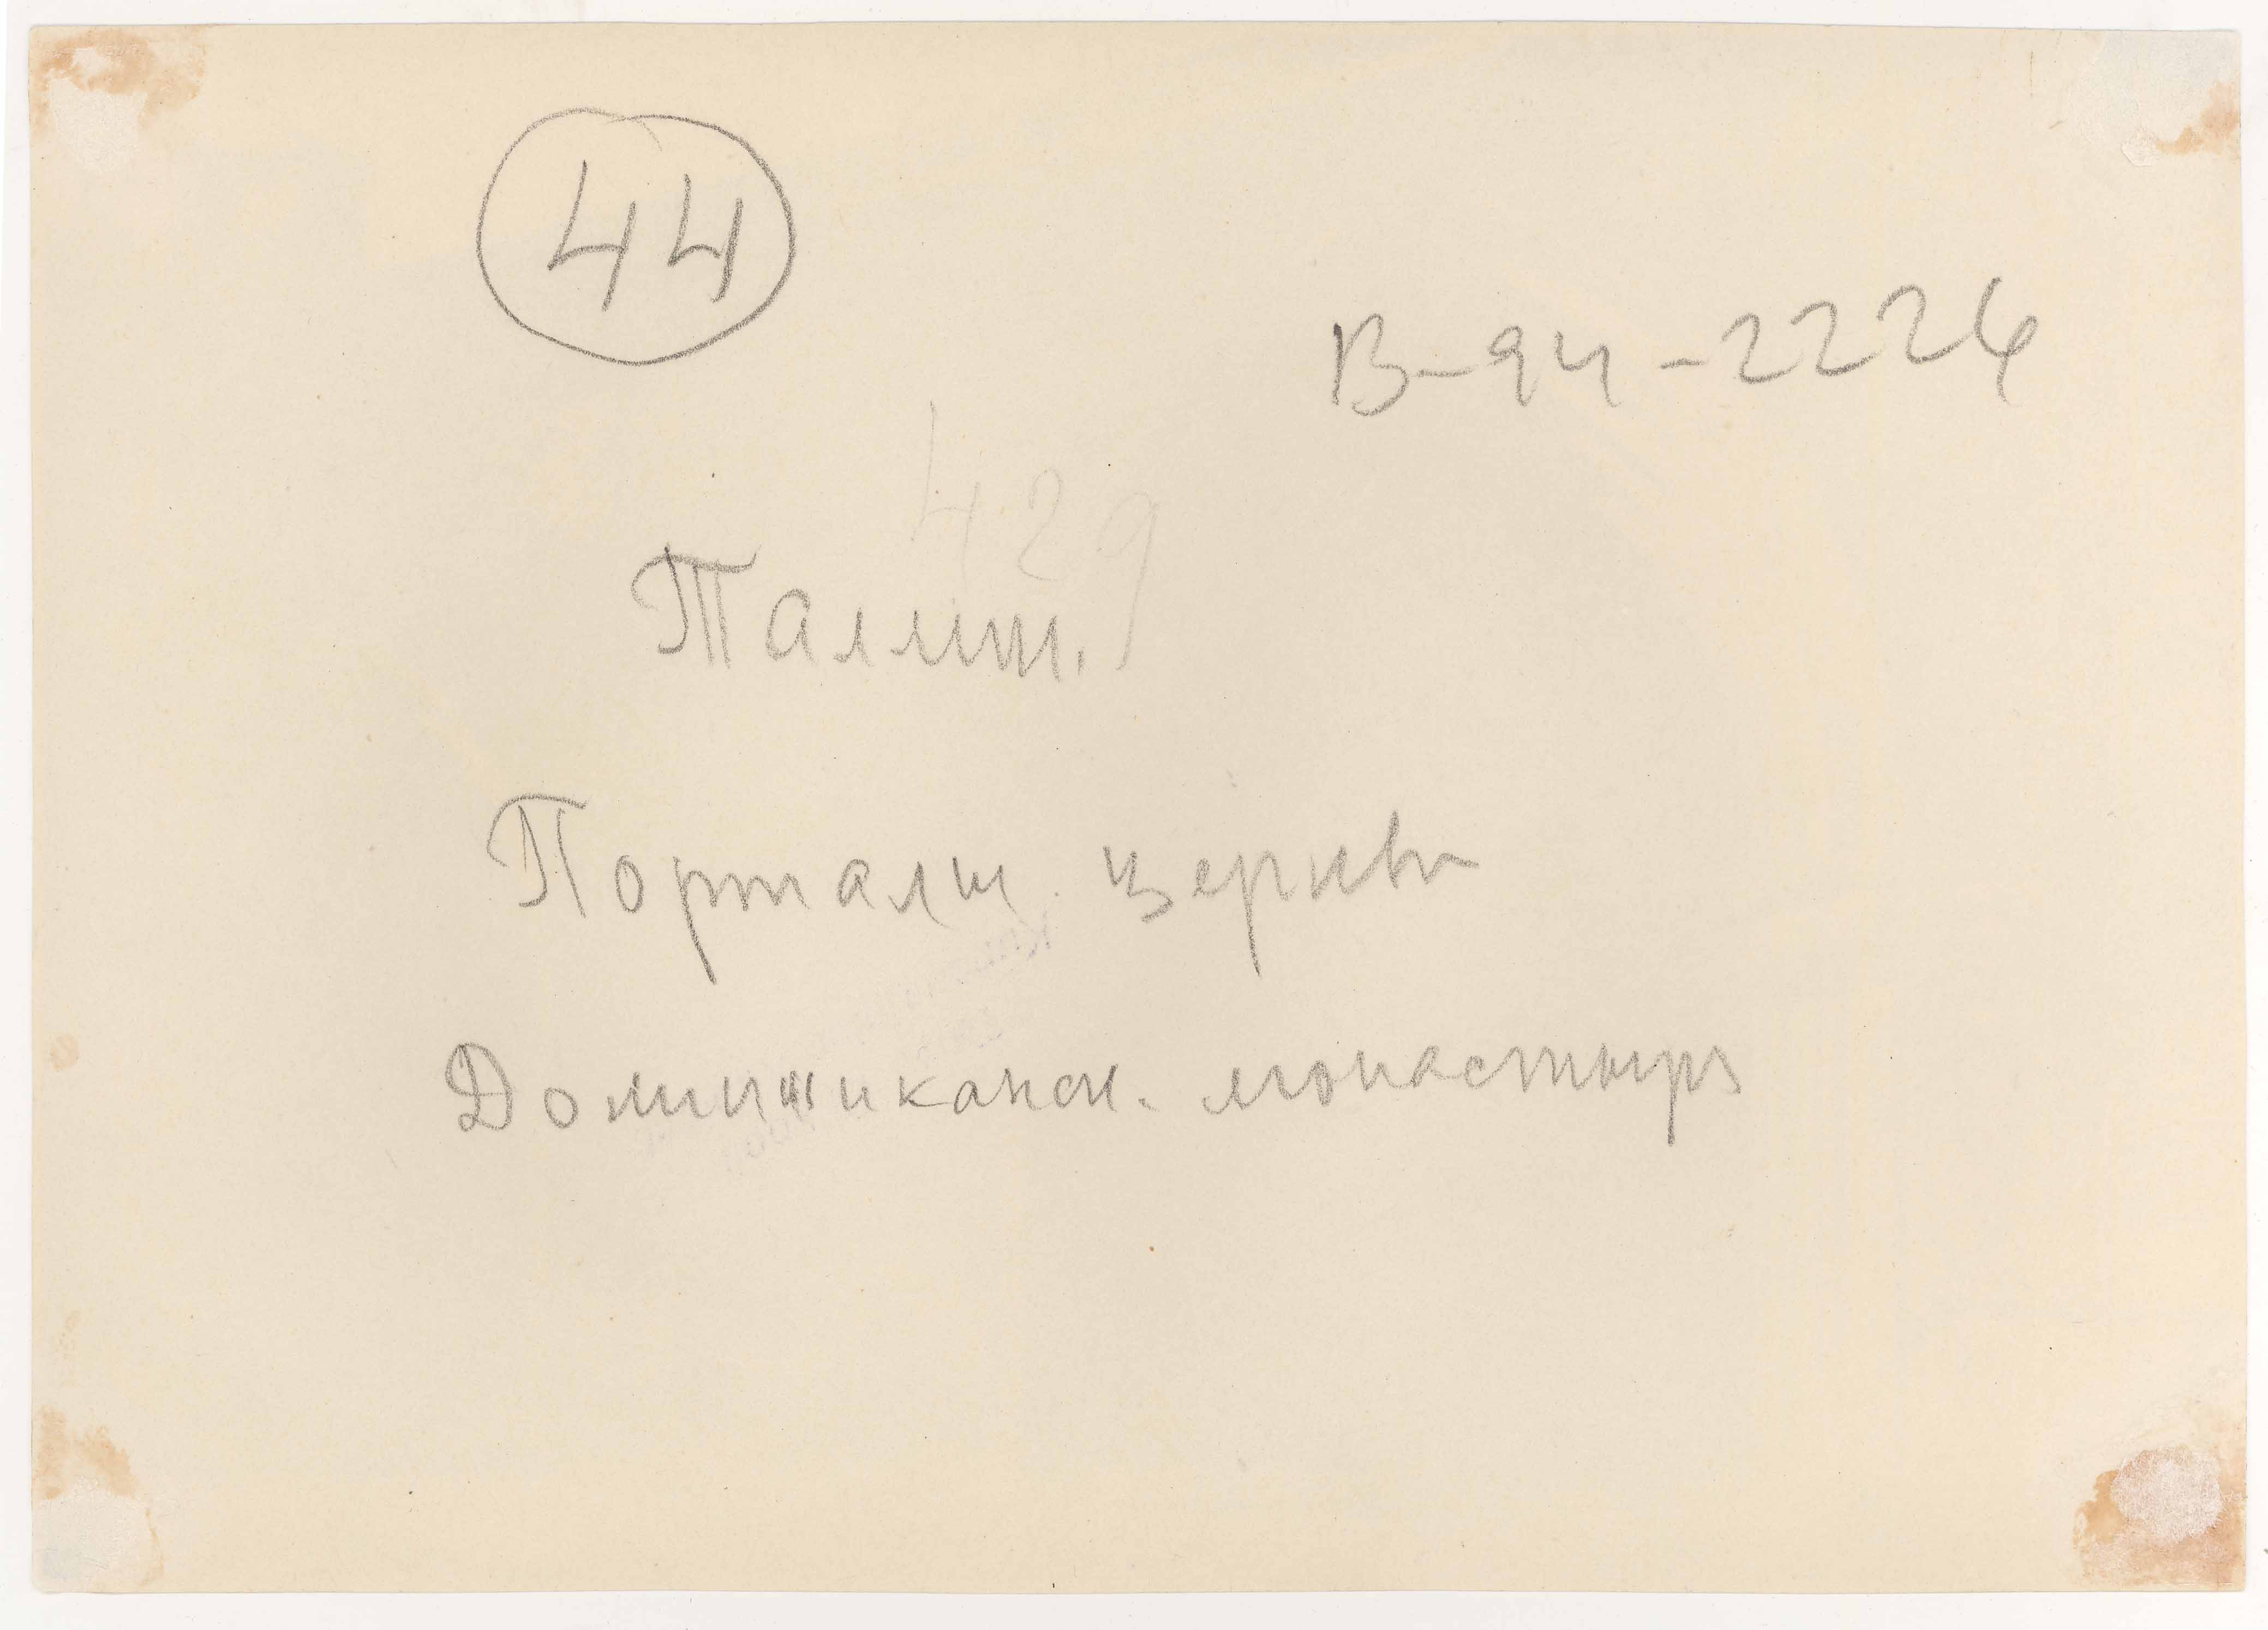 44
В-94-2224
429
Таллин.
Порталы церкви
Доминиканск. монастыря